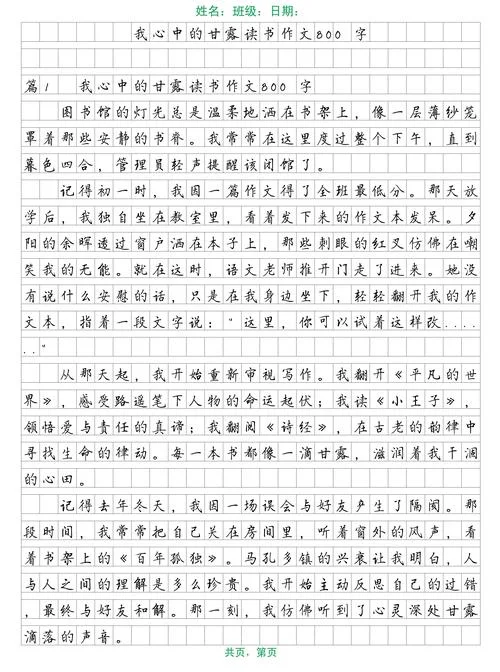 姓名：班级：日期：
我心中的甘露读书作文800 字
篇1 我心中的甘露读书作文800 字
图书馆的灯光总是温柔地洒在书架上，像一层薄纱笼
罩着那些安静的书脊。我常常在这里度过整个下午，直到
暮色四合，管理员轻声提醒该闭馆了。
记得初一时，我因一篇作文得了全班最低分。那天放
学后，我独自坐在教室里，看着发下来的作文本发呆。夕
阳的余晖透过窗户洒在本子上，那些刺眼的红叉仿佛在嘲
笑我的无能。就在这时，语文老师推开门走了进来。她没
有说什么安慰的话，只是在我身边坐下，轻轻翻开我的作
文本，指着一段文字说："这里，你可以试着这样改....
.."
从那天起，我开始重新审视写作。我翻开《平凡的世
界》，感受路遥笔下人物的命运起伏；我读《小王子》，
领悟爱与责任的真谛；我翻阅《诗经》，在古老的韵律中
寻找生命的律动。每一本书都像一滴甘露，滋润着我干涸
的心田。
记得去年冬天，我因一场误会与好友产生了隔阂。那
段时间，我常常把自己关在房间里，听着窗外的风声，看
着书架上的《百年孤独》。马孔多镇的兴衰让我明白，人
与人之间的理解是多么珍贵。我开始主动反思自己的过错
，最终与好友和解。那一刻，我仿佛听到了心灵深处甘露
滴落的声音。
共页，第页